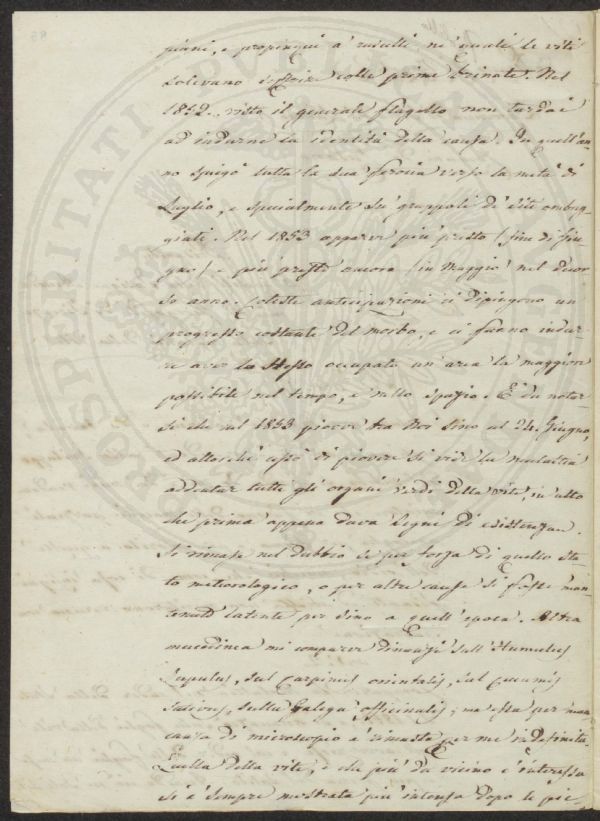 piani, e propinqui a' ruscelli ne' quali le viti
solevano fiorire colle prime brinate. Nel
1852. visto il generale flagello non tardai
ad indurne la identità della causa. In quell'an-
no spiegò tutta la sua ferocia verso la metà di
Luglio, e specialmente su' grappoli di siti ombreg-
giati. Nel 1853 apparve più presto (fine di Giu-
gno) e più presto ancora (in Maggio) nel decor-
so anno. Coteste anticipazioni ci dipingono un
progresso costante del morbo, e ci fanno indur-
re aver lo stesso occupato un'area la maggiore
possibile nel tempo, e nello spazio. È da notar-
si che nel 1853 piovve tra noi sino al 24 Giugno,
ed allorchè cessò di piovere si vide la malattia
addentar tutti gli organi verdi della vite, in atto
che prima appena dava segni di esistenza.
Si rimase nel dubbio se per forza di quello sta-
to meteorologico, o per altre cause si fosse man-
tenuta latente per sino a quell'epoca. Altra
mucedinea mi comparve dinanzi sull'Humulus
lupulus, sul Carpinus orientalis, sul Cucumis
sativus, sulla Galega officinalis; ma essa per man-
canza di microscopio è rimasta per me indefinita.
Quella della vite, e che più da vicino c'interessa
si è sempre mostrata più intensa dopo le pic-